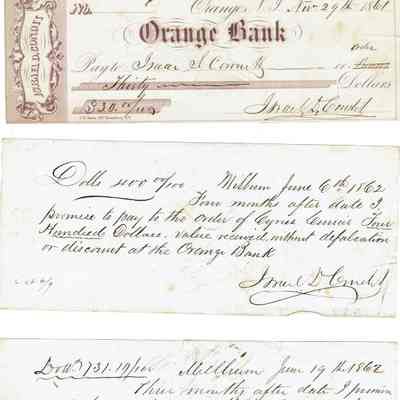 No. Orange, N.J. Nov 29th 1861
Orange Bank
order
Pay to Isaac S. or
Thirty Dollars
$30.00/100 Israel D. Condit
ISRAEL D. CONDIT
Dolls 400 00/100 Millburn June 6th 1862
Four months after date I
promise to pay to the order of Cyrus Four
Hundred Dollars. value received without defalcation
or discount at the Orange Bank
Israel D Condit
Doll's 731.19/100 Millburn June 19th 1862
Three months after date I promise